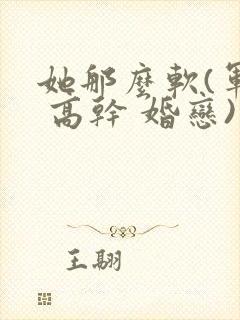 她那麼軟(軍
高幹 婚戀)
王翮